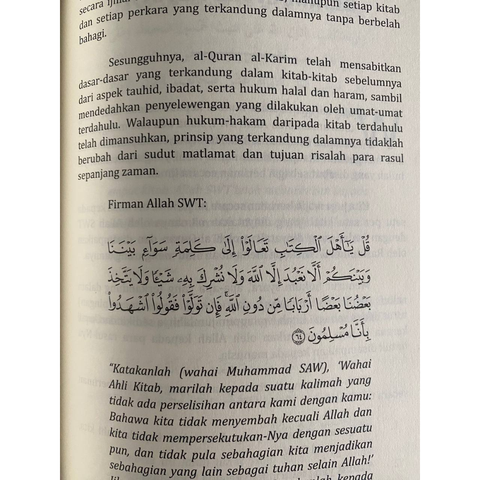 secara ijmali maupun setiap kitab
dan setiap perkara yang terkandung dalamnya tanpa berbelah
bahagi.
Sesungguhnya, al-Quran al-Karim telah mensabitkan
dasar-dasar yang terkandung dalam kitab-kitab sebelumnya
dari aspek tauhid, ibadat, serta hukum halal dan haram, sambil
mendedahkan penyelewengan yang dilakukan oleh umat-umat
terdahulu. Walaupun hukum-hakam daripada kitab terdahulu
telah dimansuhkan, prinsip yang terkandung dalamnya tidaklah
berubah dari sudut matlamat dan tujuan risalah para rasul
sepanjang zaman.
Firman Allah SWT:
قُلْ يَٰٓأَهْلَ ٱلْكِتَٰبِ تَعَالَوْا۟ إِلَىٰ كَلِمَةٍ سَوَآءٍۭ بَيْنَنَا
وَبَيْنَكُمْ أَلَّا نَعْبُدَ إِلَّا ٱللَّهَ وَلَا نُشْرِكَ بِهِۦ شَيْـًٔا وَلَا يَتَّخِذَ
بَعْضُنَا بَعْضًا أَرْبَابًا مِّن دُونِ ٱللَّهِ ۚ فَإِن تَوَلَّوْا۟ فَقُولُوا۟ ٱشْهَدُوا۟
بِأَنَّا مُسْلِمُونَ ٦٤
“Katakanlah (wahai Muhammad SAW), ‘Wahai
Ahli Kitab, marilah kepada suatu kalimah yang
tidak ada perselisihan antara kami dengan kamu:
Bahawa kita tidak menyembah kecuali Allah dan
kita tidak mempersekutukan-Nya dengan sesuatu
pun, dan tidak pula sebahagian kita menjadikan
sebahagian yang lain sebagai tuhan selain Allah!’
kepada